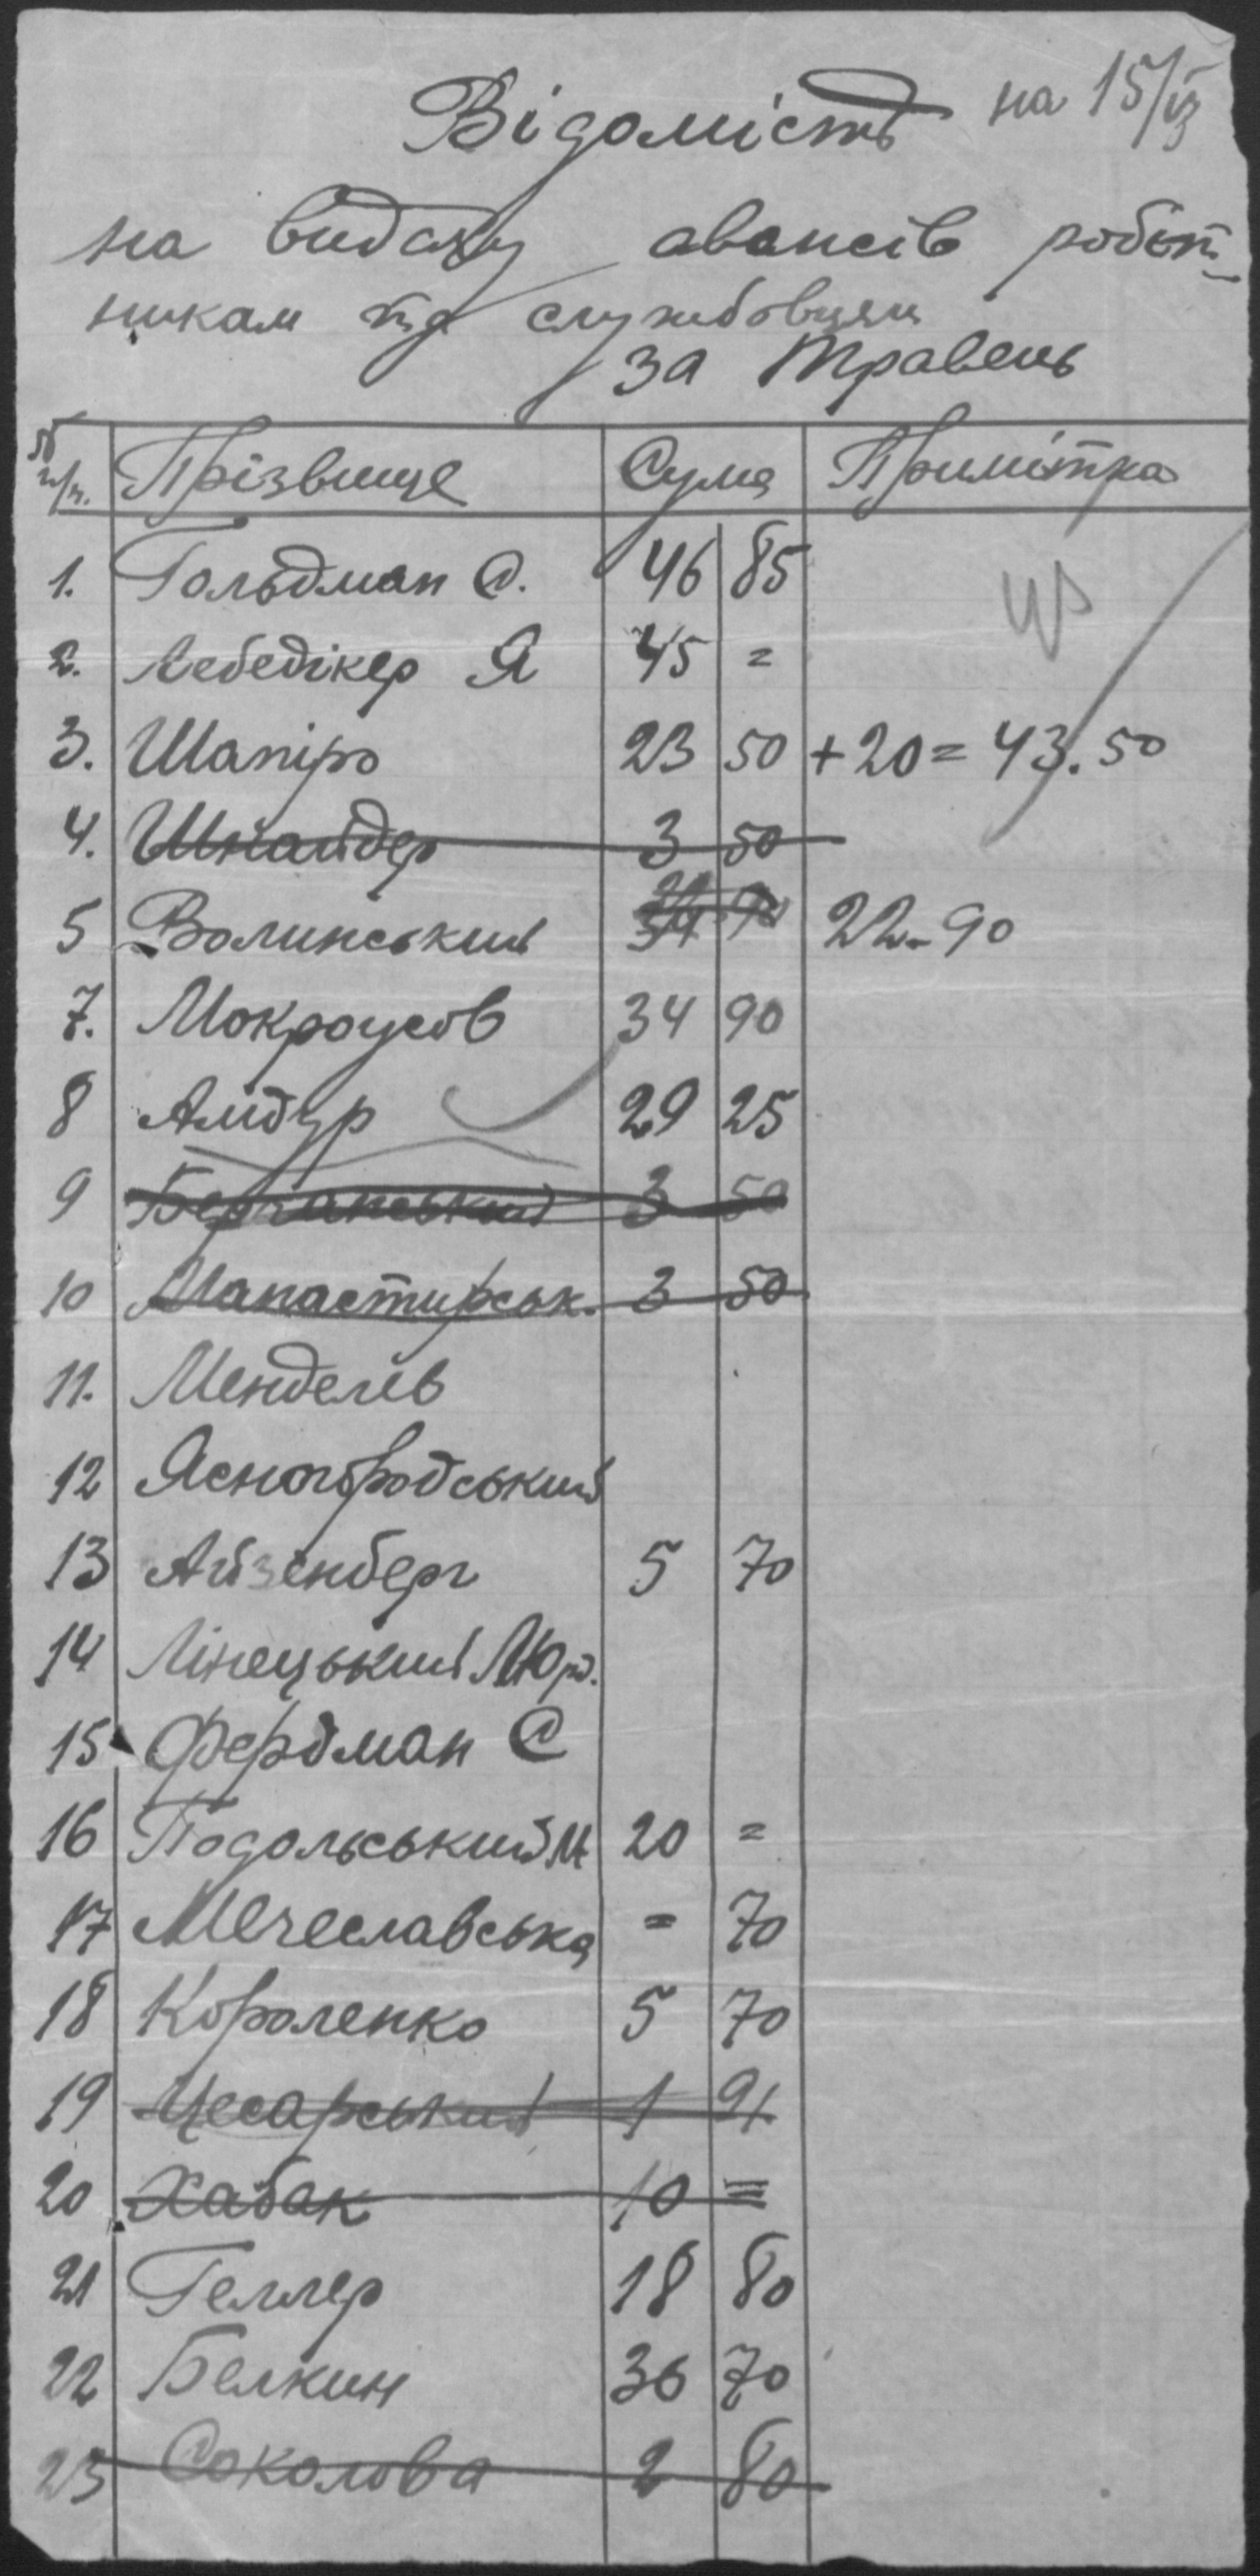 Відомість на 15/
на видачу авансів робіт-
никам та службовцям
за травень
№ п/п. Прізвище Сума Примітка
1. Гольдман С. 46 85
2. Лебедікер Я 45 =
3. Шапіро 23 50 + 20 = 43.50
4. Шнайдер 3 50
5 Волинський 22-90
7. Мокроусов 34 90
8 Амдур 29 25
9 3 50
10 Манастирськ. 3 50
11. Менделєв
12 Ясногородський
13 Айзенберг 5 70
14 Лінецький Юр.
15 Фердман С
16 Подольський М 20 =
17 Мечеславська = 70
18 Короленко 5 70
19 Цесарський 1 91
20 Хабак 10 =
21 Геллер 18 80
22 Белкин 36 70
23 Соколова 2 80